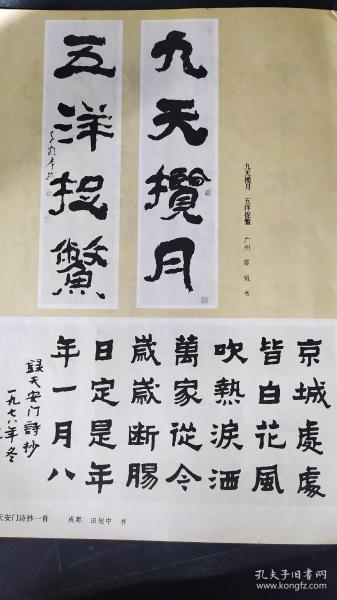 九天攬月
五洋捉鱉
九天揽月 五洋捉鳖
广州 书
京城處處
皆白花風
吹熱淚洒
萬家從今
歲歲断腸
日定是年
年一月八
録天安门詩抄
一九七八年冬
天安门诗抄一首
成都 田旭中 书
孔夫子旧书网